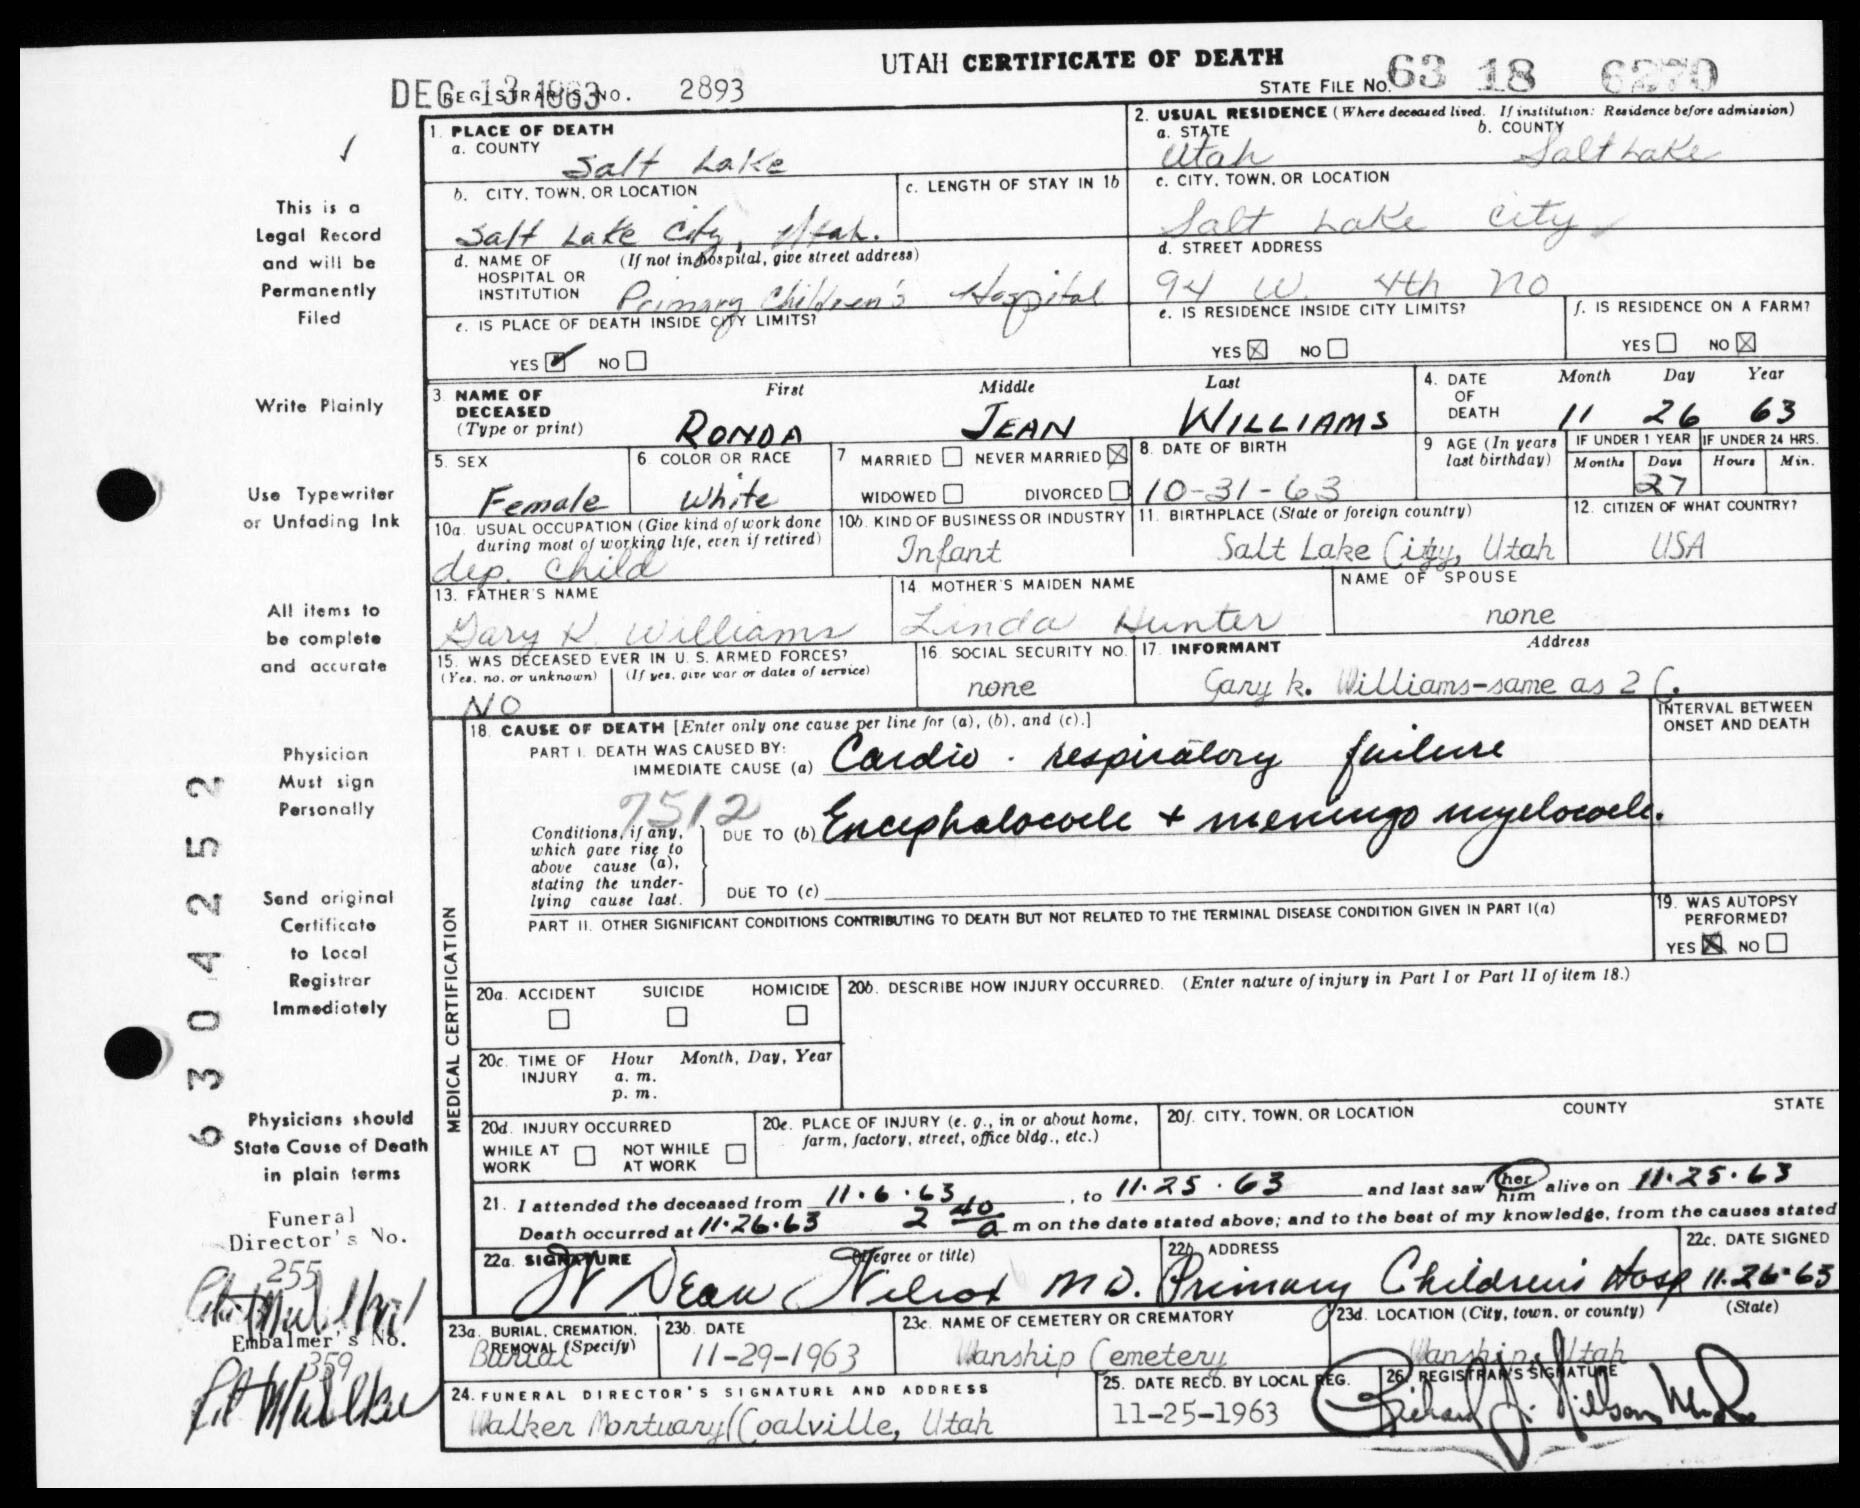 UTAH CERTIFICATE OF DEATH
DEC 13 1963 REGISTRAR'S NO. 2893
STATE FILE NO. 63 18 6270
1. PLACE OF DEATH
a. COUNTY Salt Lake
2. USUAL RESIDENCE (Where deceased lived. If institution: Residence before admission)
a. STATE Utah b. COUNTY Salt Lake
b. CITY, TOWN, OR LOCATION Salt Lake City, Utah.
c. LENGTH OF STAY IN 1b
c. CITY, TOWN, OR LOCATION Salt Lake City
d. NAME OF HOSPITAL OR INSTITUTION (If not in hospital, give street address) Primary Children's Hospital
d. STREET ADDRESS 94 W. 4th No
e. IS PLACE OF DEATH INSIDE CITY LIMITS?
YES NO
e. IS RESIDENCE INSIDE CITY LIMITS?
YES NO
f. IS RESIDENCE ON A FARM?
YES NO
3. NAME OF DECEASED (Type or print)
First Middle Last
RONDA JEAN WILLIAMS
4. DATE OF DEATH Month Day Year
11 26 63
5. SEX Female
6. COLOR OR RACE White
7 MARRIED NEVER MARRIED
WIDOWED DIVORCED
8. DATE OF BIRTH 10-31-63
9 AGE (In years last birthday)
IF UNDER 1 YEAR IF UNDER 24 HRS.
Months Days Hours Min.
27
10a. USUAL OCCUPATION (Give kind of work done during most of working life, even if retired)
dep. child
10b. KIND OF BUSINESS OR INDUSTRY
Infant
11. BIRTHPLACE (State or foreign country)
Salt Lake City, Utah
12. CITIZEN OF WHAT COUNTRY?
USA
13. FATHER'S NAME
Gary K. Williams
14 MOTHER'S MAIDEN NAME
Linda Hunter
NAME OF SPOUSE
none
15. WAS DECEASED EVER IN U. S. ARMED FORCES?
(Yes, no, or unknown) (If yes, give war or dates of service)
NO
16. SOCIAL SECURITY NO.
none
17. INFORMANT Address
Gary k. Williams-same as 2 C.
18. CAUSE OF DEATH [Enter only one cause per line for (a), (b), and (c).]
INTERVAL BETWEEN ONSET AND DEATH
PART I. DEATH WAS CAUSED BY:
IMMEDIATE CAUSE (a) Cardio - respiratory failure
7512
Conditions, if any, which gave rise to above cause (a), stating the underlying cause last.
DUE TO (b) Encephalocoele + meningo myelocoele.
DUE TO (c)
PART II. OTHER SIGNIFICANT CONDITIONS CONTRIBUTING TO DEATH BUT NOT RELATED TO THE TERMINAL DISEASE CONDITION GIVEN IN PART I(a)
19. WAS AUTOPSY PERFORMED?
YES NO
MEDICAL CERTIFICATION
20a. ACCIDENT SUICIDE HOMICIDE
20b. DESCRIBE HOW INJURY OCCURRED. (Enter nature of injury in Part I or Part II of item 18.)
20c. TIME OF INJURY Hour Month, Day, Year
a. m.
p. m.
20d. INJURY OCCURRED
WHILE AT WORK NOT WHILE AT WORK
20e. PLACE OF INJURY (e. g., in or about home, farm, factory, street, office bldg., etc.)
20f. CITY, TOWN, OR LOCATION COUNTY STATE
21. I attended the deceased from 11.6.63, to 11.25.63 and last saw her him alive on 11.25.63
Death occurred at 11.26.63 2 40 a m on the date stated above; and to the best of my knowledge, from the causes stated
22a. SIGNATURE (Degree or title)
W Dean Wilcox MD.
22b. ADDRESS
Primary Children's Hosp
22c. DATE SIGNED
11.26.63
23a. BURIAL, CREMATION, REMOVAL (Specify)
Burial
23b. DATE
11-29-1963
23c. NAME OF CEMETERY OR CREMATORY
Wanship Cemetery
23d. LOCATION (City, town, or county) (State)
Wanship, Utah
24. FUNERAL DIRECTOR'S SIGNATURE AND ADDRESS
Walker Mortuary Coalville, Utah
25. DATE RECD. BY LOCAL REG.
11-25-1963
26. REGISTRAR'S SIGNATURE
This is a
Legal Record
and will be
Permanently
Filed
Write Plainly
Use Typewriter
or Unfading Ink
All items to
be complete
and accurate
Physician
Must sign
Personally
Send original
Certificate
to Local
Registrar
Immediately
Physicians should
State Cause of Death
in plain terms
Funeral
Director's No.
255
Embalmer's No.
359
6304252